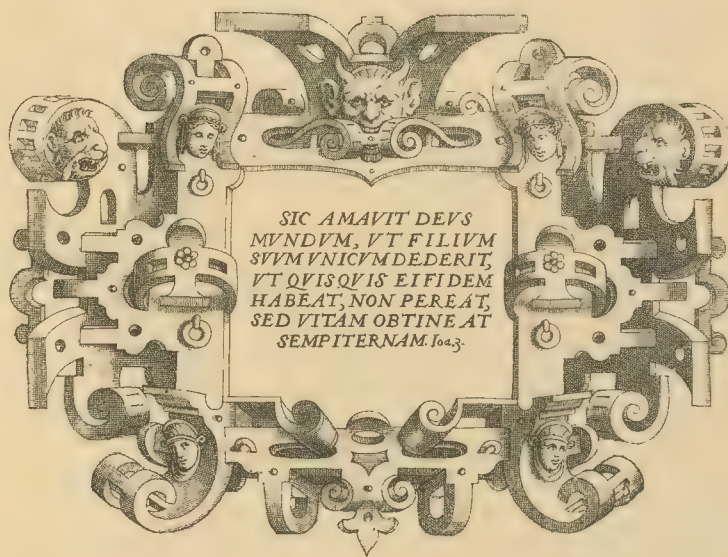 SIC AMAVIT DEVS
MVNDVM, VT FILIVM
SVVM VNICVM DEDERIT,
VT QVISQVIS EI FIDEM
HABEAT, NON PEREAT,
SED VITAM OBTINEAT
SEMPITERNAM. Ioa.3.